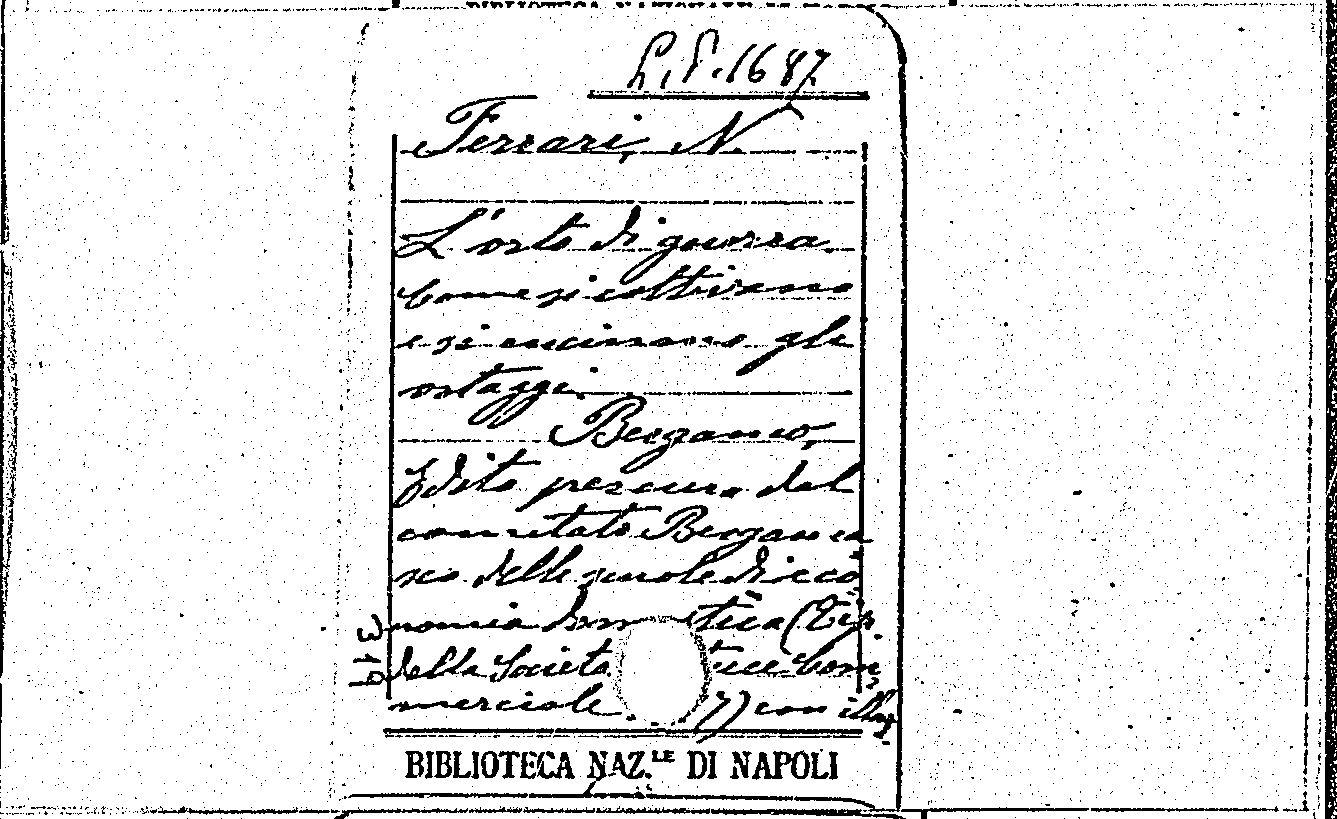 L.P. 1687
Ferrari, N.
L'orto di guerra.
Come si coltivano
e si cucinano gli
ortaggi.
Bergamo,
Edito per cura del
comitato Bergama
sco delle scuole di eco
nomia dom stica (Tip.
della Società trice Com
merciale 17) con illus
BIBLIOTECA NAZ.LE DI NAPOLI